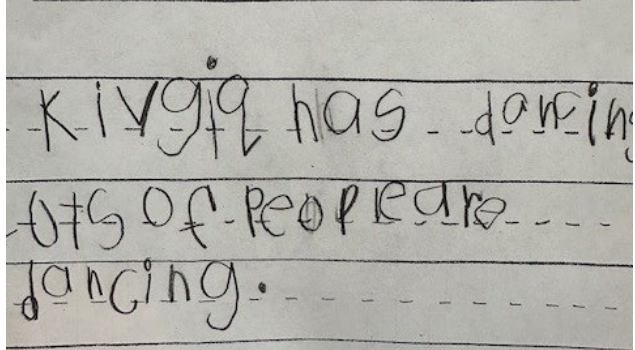 Kivgiq has dancing
ots of people are
dancing.